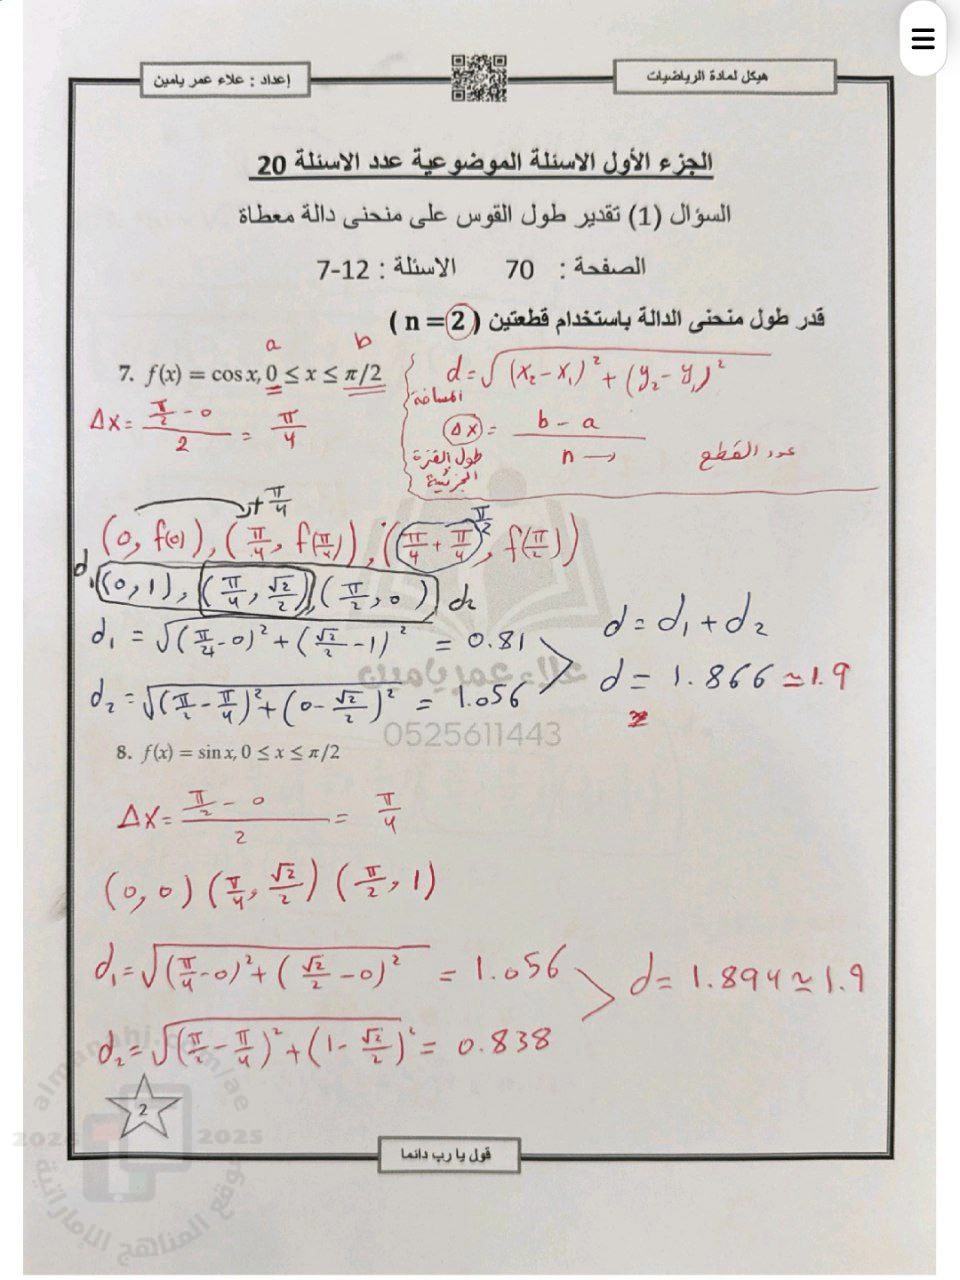 هيكل لمادة الرياضيات
إعداد : علاء عمر يامين
الجزء الأول الاسئلة الموضوعية عدد الاسئلة 20
السؤال (1) تقدير طول القوس على منحنى دالة معطاة
الصفحة : 70 الاسئلة : 7-12
قدر طول منحنى الدالة باستخدام قطعتين ( n = 2 )
a b
7. f(x) = cos x, 0 ≤ x ≤ π/2
d = √((x₂ - x₁)² + (y₂ - y₁)²
المسافة
Δx = (π/2 - 0)/2 = π/4
Δx = (b - a)/n → عدد القطع
طول الفترة
الجزئية
+ π/4
(0, f(0)), (π/4, f(π/4)), (π/4 + π/4, f(π/2))
π/2
d₁ (0, 1), (π/4, √2/2), (π/2, 0) d₂
d₁ = √((π/4 - 0)² + (√2/2 - 1)² = 0.81
d = d₁ + d₂
d₂ = √((π/2 - π/4)² + (0 - √2/2)² = 1.056
d = 1.866 ≃ 1.9
علاء عمر يامين
0525611443
8. f(x) = sin x, 0 ≤ x ≤ π/2
Δx = (π/2 - 0)/2 = π/4
(0, 0) (π/4, √2/2) (π/2, 1)
d₁ = √((π/4 - 0)² + (√2/2 - 0)² = 1.056
d = 1.894 ≃ 1.9
d₂ = √((π/2 - π/4)² + (1 - √2/2)² = 0.838
2
almanahj.com/ae
2024 2025
موقع المناهج الإماراتية
قول يا رب دائما